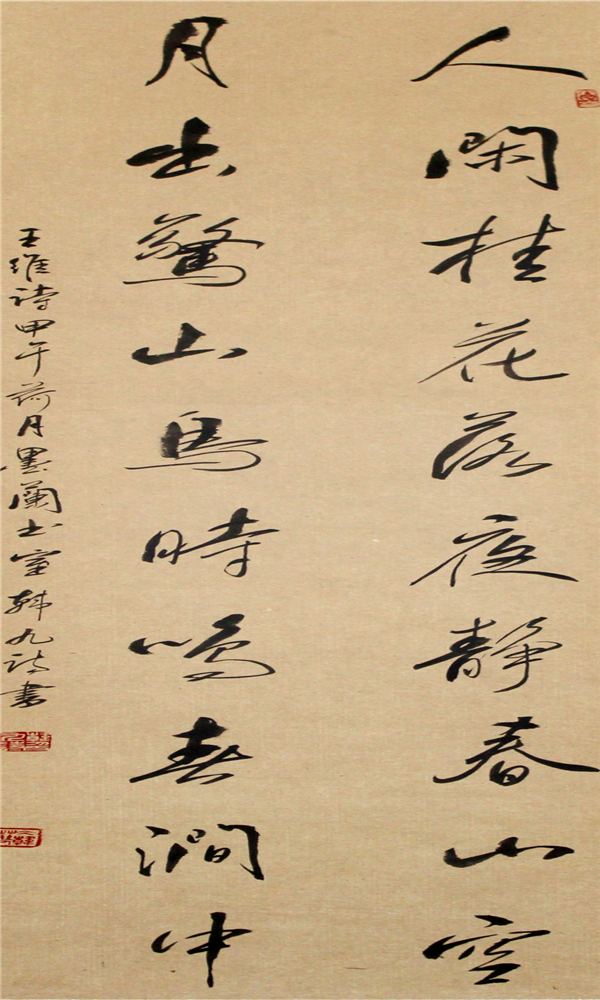 人閑桂花落夜靜春山空
月出驚山鳥時鳴春澗中
王維詩甲午荷月墨蘭書室韩九诗書